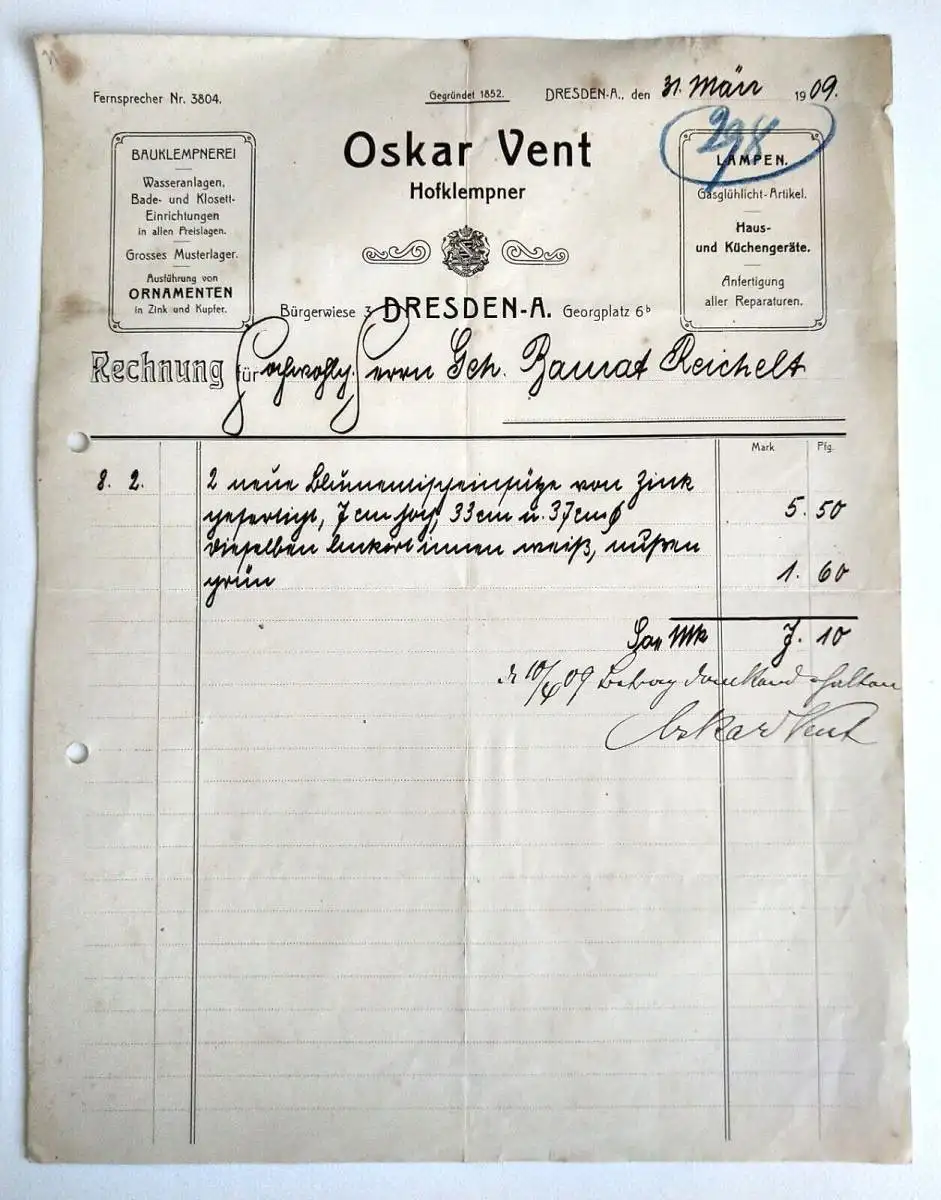 Fernsprecher Nr. 3804.
Gegründet 1852.
DRESDEN-A., den 31. März 1909.
298
Oskar Vent
Hofklempner
BAUKLEMPNEREI
Wasseranlagen,
Bade- und Klosett-
Einrichtungen
in allen Preislagen.
Grosses Musterlager.
Ausführung von
ORNAMENTEN
in Zink und Kupfer.
LAMPEN.
Gasglühlicht-Artikel.
Haus-
und Küchengeräte.
Anfertigung
aller Reparaturen.
Bürgerwiese 3 DRESDEN-A. Georgplatz 6b
Rechnung für Hochwohlg. Herrn Geh. Baurat Reichelt
Mark Pfg.
8. 2. 2 neue Blumentischeinsätze von Zink
gefertigt, 7 cm hoch, 33 cm u. 37 cm ø 5. 50
dieselben lackiert innen weiß, außen
grün 1. 60
Mk 7. 10
d 10/4 09 Betrag dankend erhalten
Oskar Vent